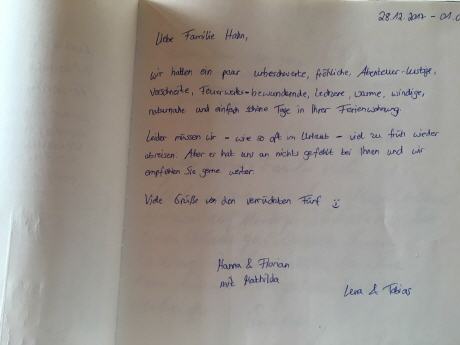 28.12.2017 - 01.0
Liebe Familie Hahn,
wir hatten ein paar unbeschwerte, fröhliche, Abenteuer-lustige,
verschneite, Feuerwerks-bewundernde, leckere, warme, windige,
naturnahe und einfach schöne Tage in Ihrer Ferienwohnung.
Leider müssen wir - wie so oft im Urlaub - viel zu früh wieder
abreisen. Aber er hat uns an nichts gefehlt bei Ihnen und wir
empfehlen Sie gerne weiter.
Viele Grüße von den verrückten Fünf
Hanna & Florian
mit Mathilda
Lena & Tobias